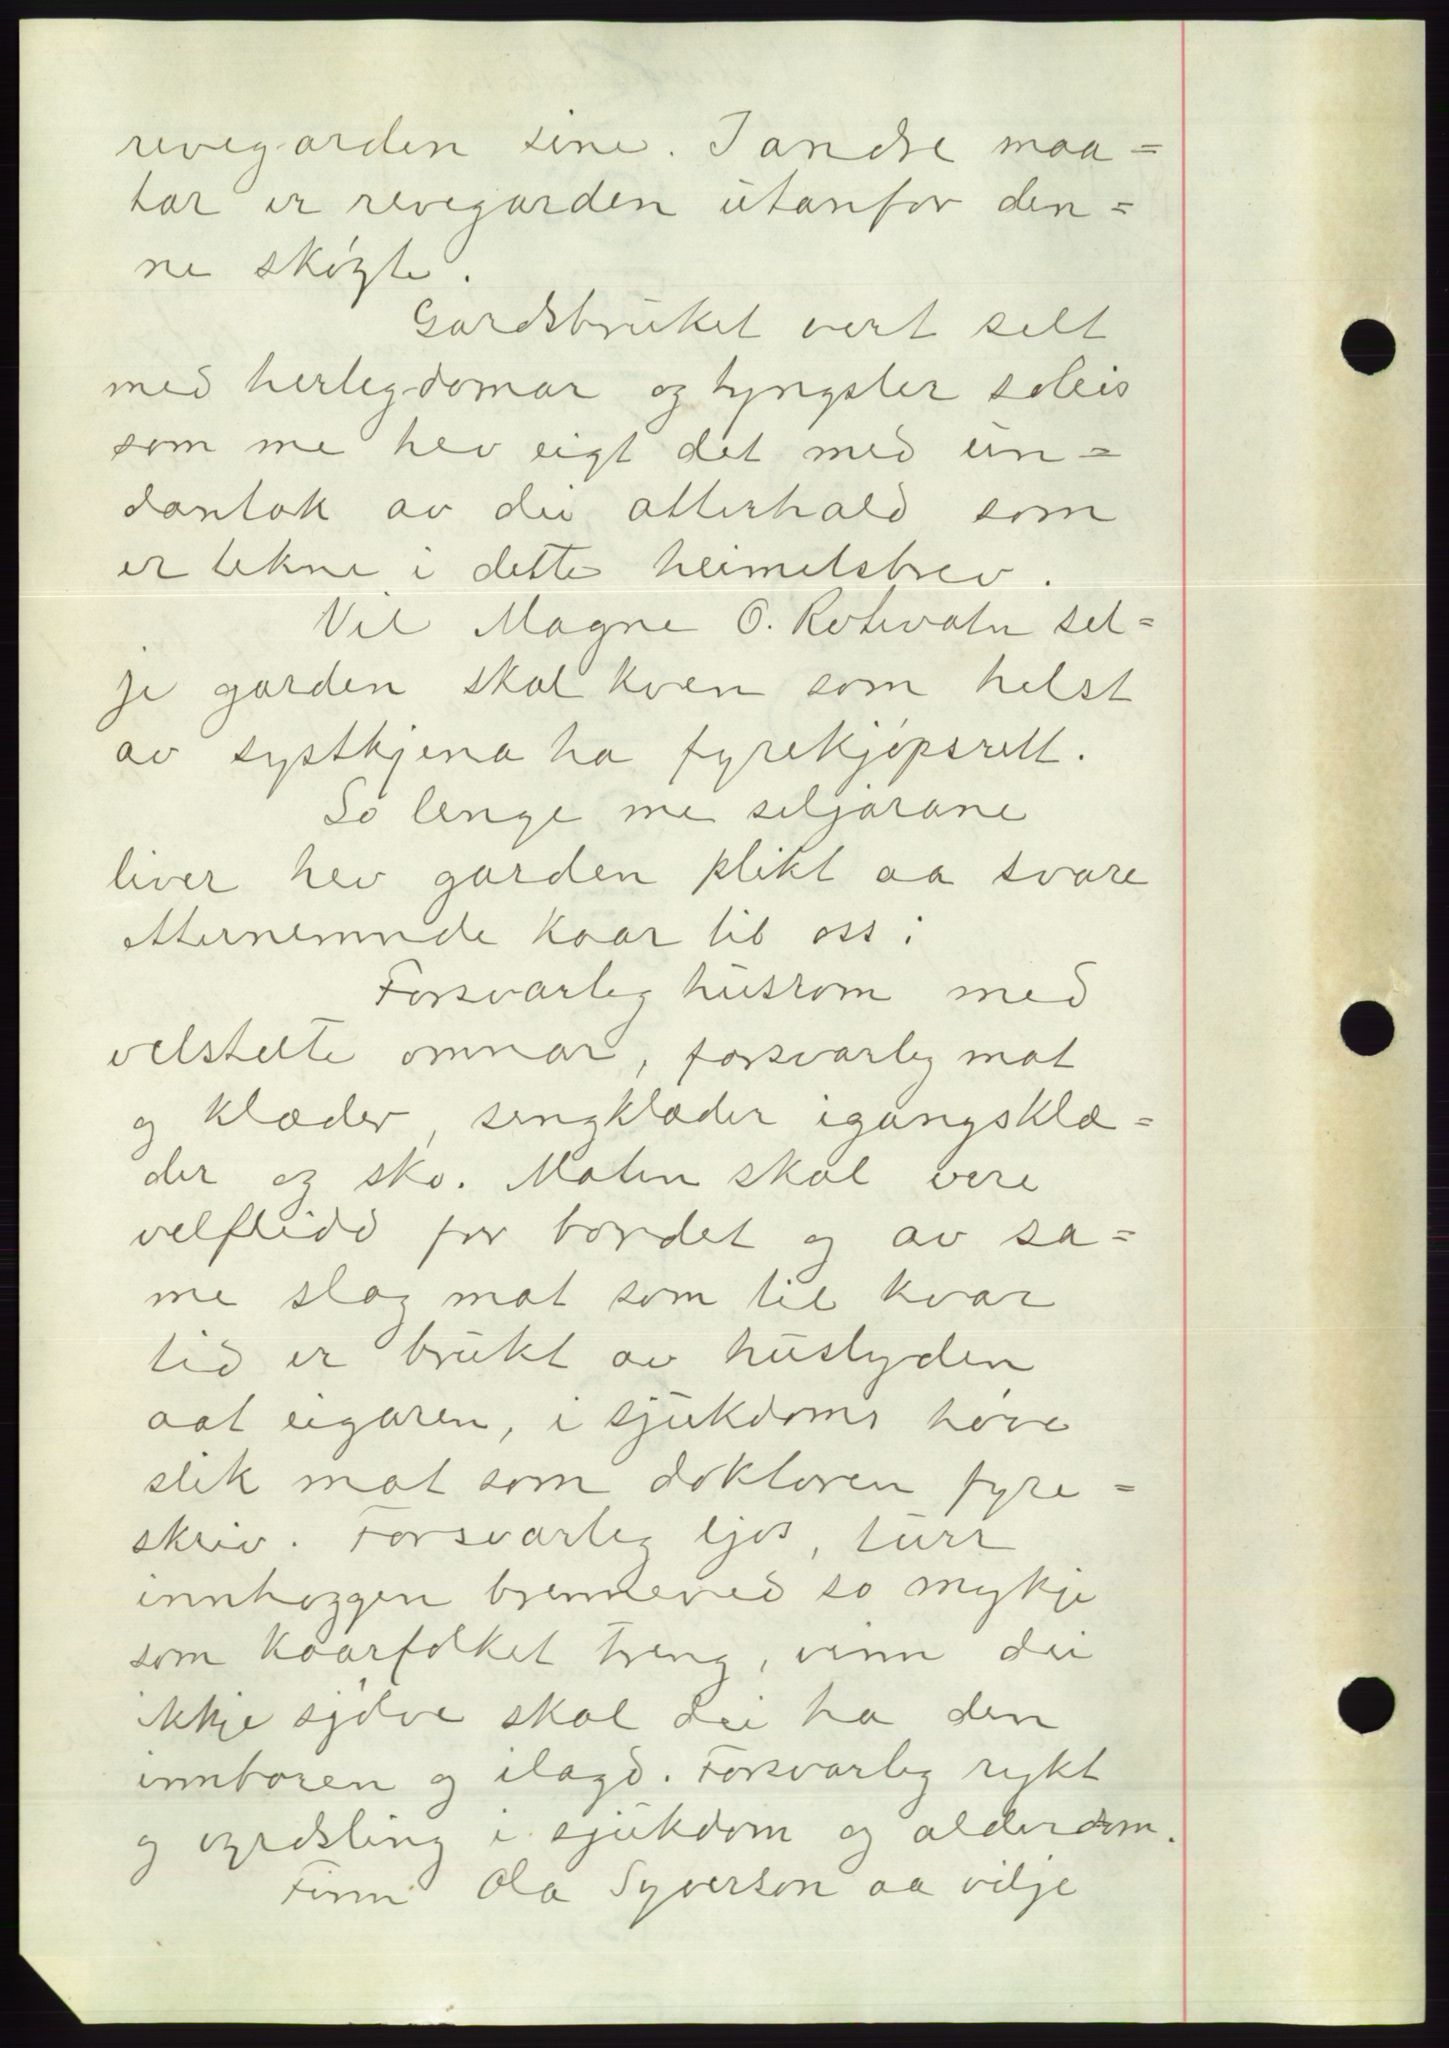 revegarden sine. I andre maa=
tar er revegarden utanfor den=
ne skøyte.
Gardsbruket vert selt
med herlegdomar og tyngsler soleis
som me hev eigt det med un=
dantak av dei atterhald som
er tekne i dette heimelsbrev.
Vil Magne O. Rotevatn sel=
je garden skal kven som helst
av systkjena ha fyrekjøpsrett.
So lenge me seljarane
liver hev garden plikt aa svare
etternemnde kaar til oss:
Forsvarleg husrom med
velstelte omnar, forsvarleg mat
og klæder, sengklæder igangsklæ=
der og sko. Maten skal vere
velflidd for bordet og av sa=
me slag mat som til kvar
tid er brukt av huslyden
aat eigaren, i sjukdoms høve
slik mat som doktoren fyre=
skriv. Forsvarleg ljos, turr
innhoggen brenneved so mykje
som kaarfolket treng, vinn dei
ikkje sjølve skal dei ha den
innboren og ilagd. Forsvarleg rykt
og vyrdsling i sjukdom og alderdom.
Finn Ola Syverson aa vilje